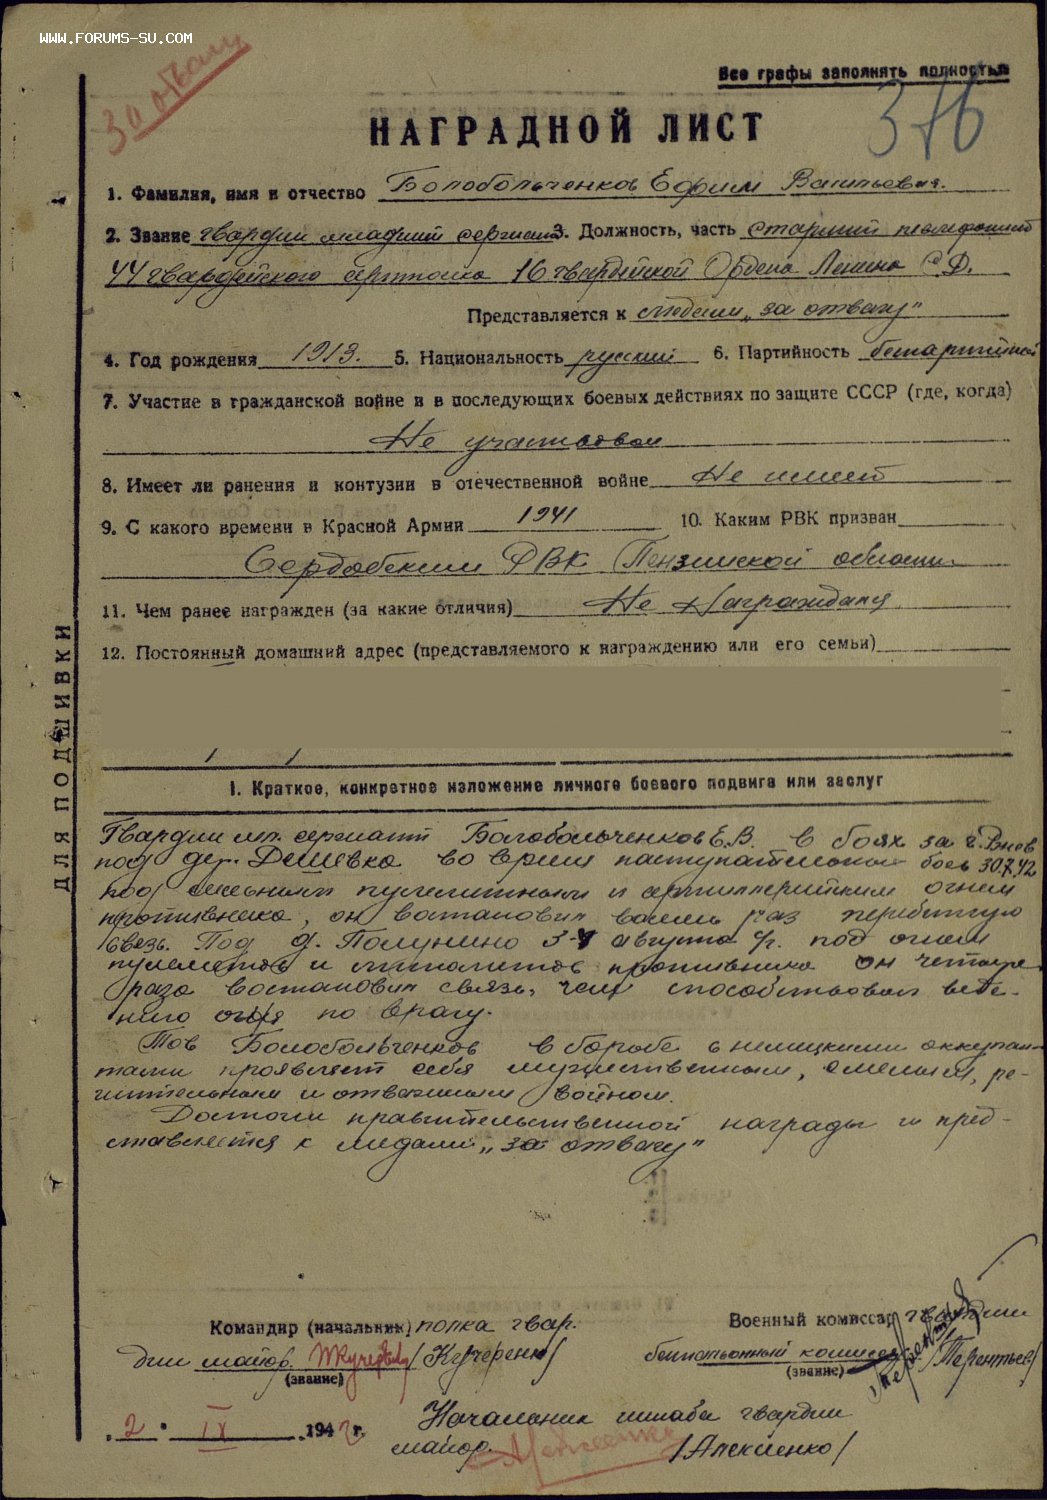 WWW.FORUMS-SU.COM
За отвагу
Все графы заполнять полностью
376
НАГРАДНОЙ ЛИСТ
1. Фамилия, имя и отчество Болобольченков Ефим Васильевич.
2. Звание гвардии младший сержант 3. Должность, часть старший телефонист
44 гвардейского артполка 16 гвардейской Ордена Ленина С.Д.
Представляется к медали „за отвагу"
4. Год рождения 1913. 5. Национальность русский 6. Партийность беспартийный
7. Участие в гражданской войне и в последующих боевых действиях по защите СССР (где, когда)
Не участвовал
8. Имеет ли ранения и контузии в отечественной войне Не имеет
9. С какого времени в Красной Армии 1941 10. Каким РВК призван
Сердобским РВК Пензинской области
11. Чем ранее награжден (за какие отличия) Не Награждался
12. Постоянный домашний адрес (представляемого к награждению или его семьи)
ДЛЯ ПОДШИВКИ
1. Краткое, конкретное изложение личного боевого подвига или заслуг
Гвардии мл. сержант Болобольченков Е.В. в боях за г. Ржев
под дер. Дешевка во время наступательного боя 30.7.42
под сильным пулеметным и артиллерийским огнем
противника, он востановил восемь раз перебитую
связь. Под д. Полунино 3-4 августа с/г. под огнем
пулеметов и минометов противника он четыре
раза востановил связь, чем способствовал веде-
нию огня по врагу.
Тов Болобольченков в борьбе с немецкими оккупан-
тами проявляет себя мужественным, смелым, ре-
шительным и отважным войном.
Достоин правительственной награды и пред-
ставляется к медали „за отвагу"
Командир (начальник) полка гвар.
дии майор. /Кучеренко/
(звание)
Военный комиссар гвардии
батальонный комиссар /Терентьев/
(звание)
2 IX 1942 г.
Начальник штаба гвардии
майор. /Алексиенко/